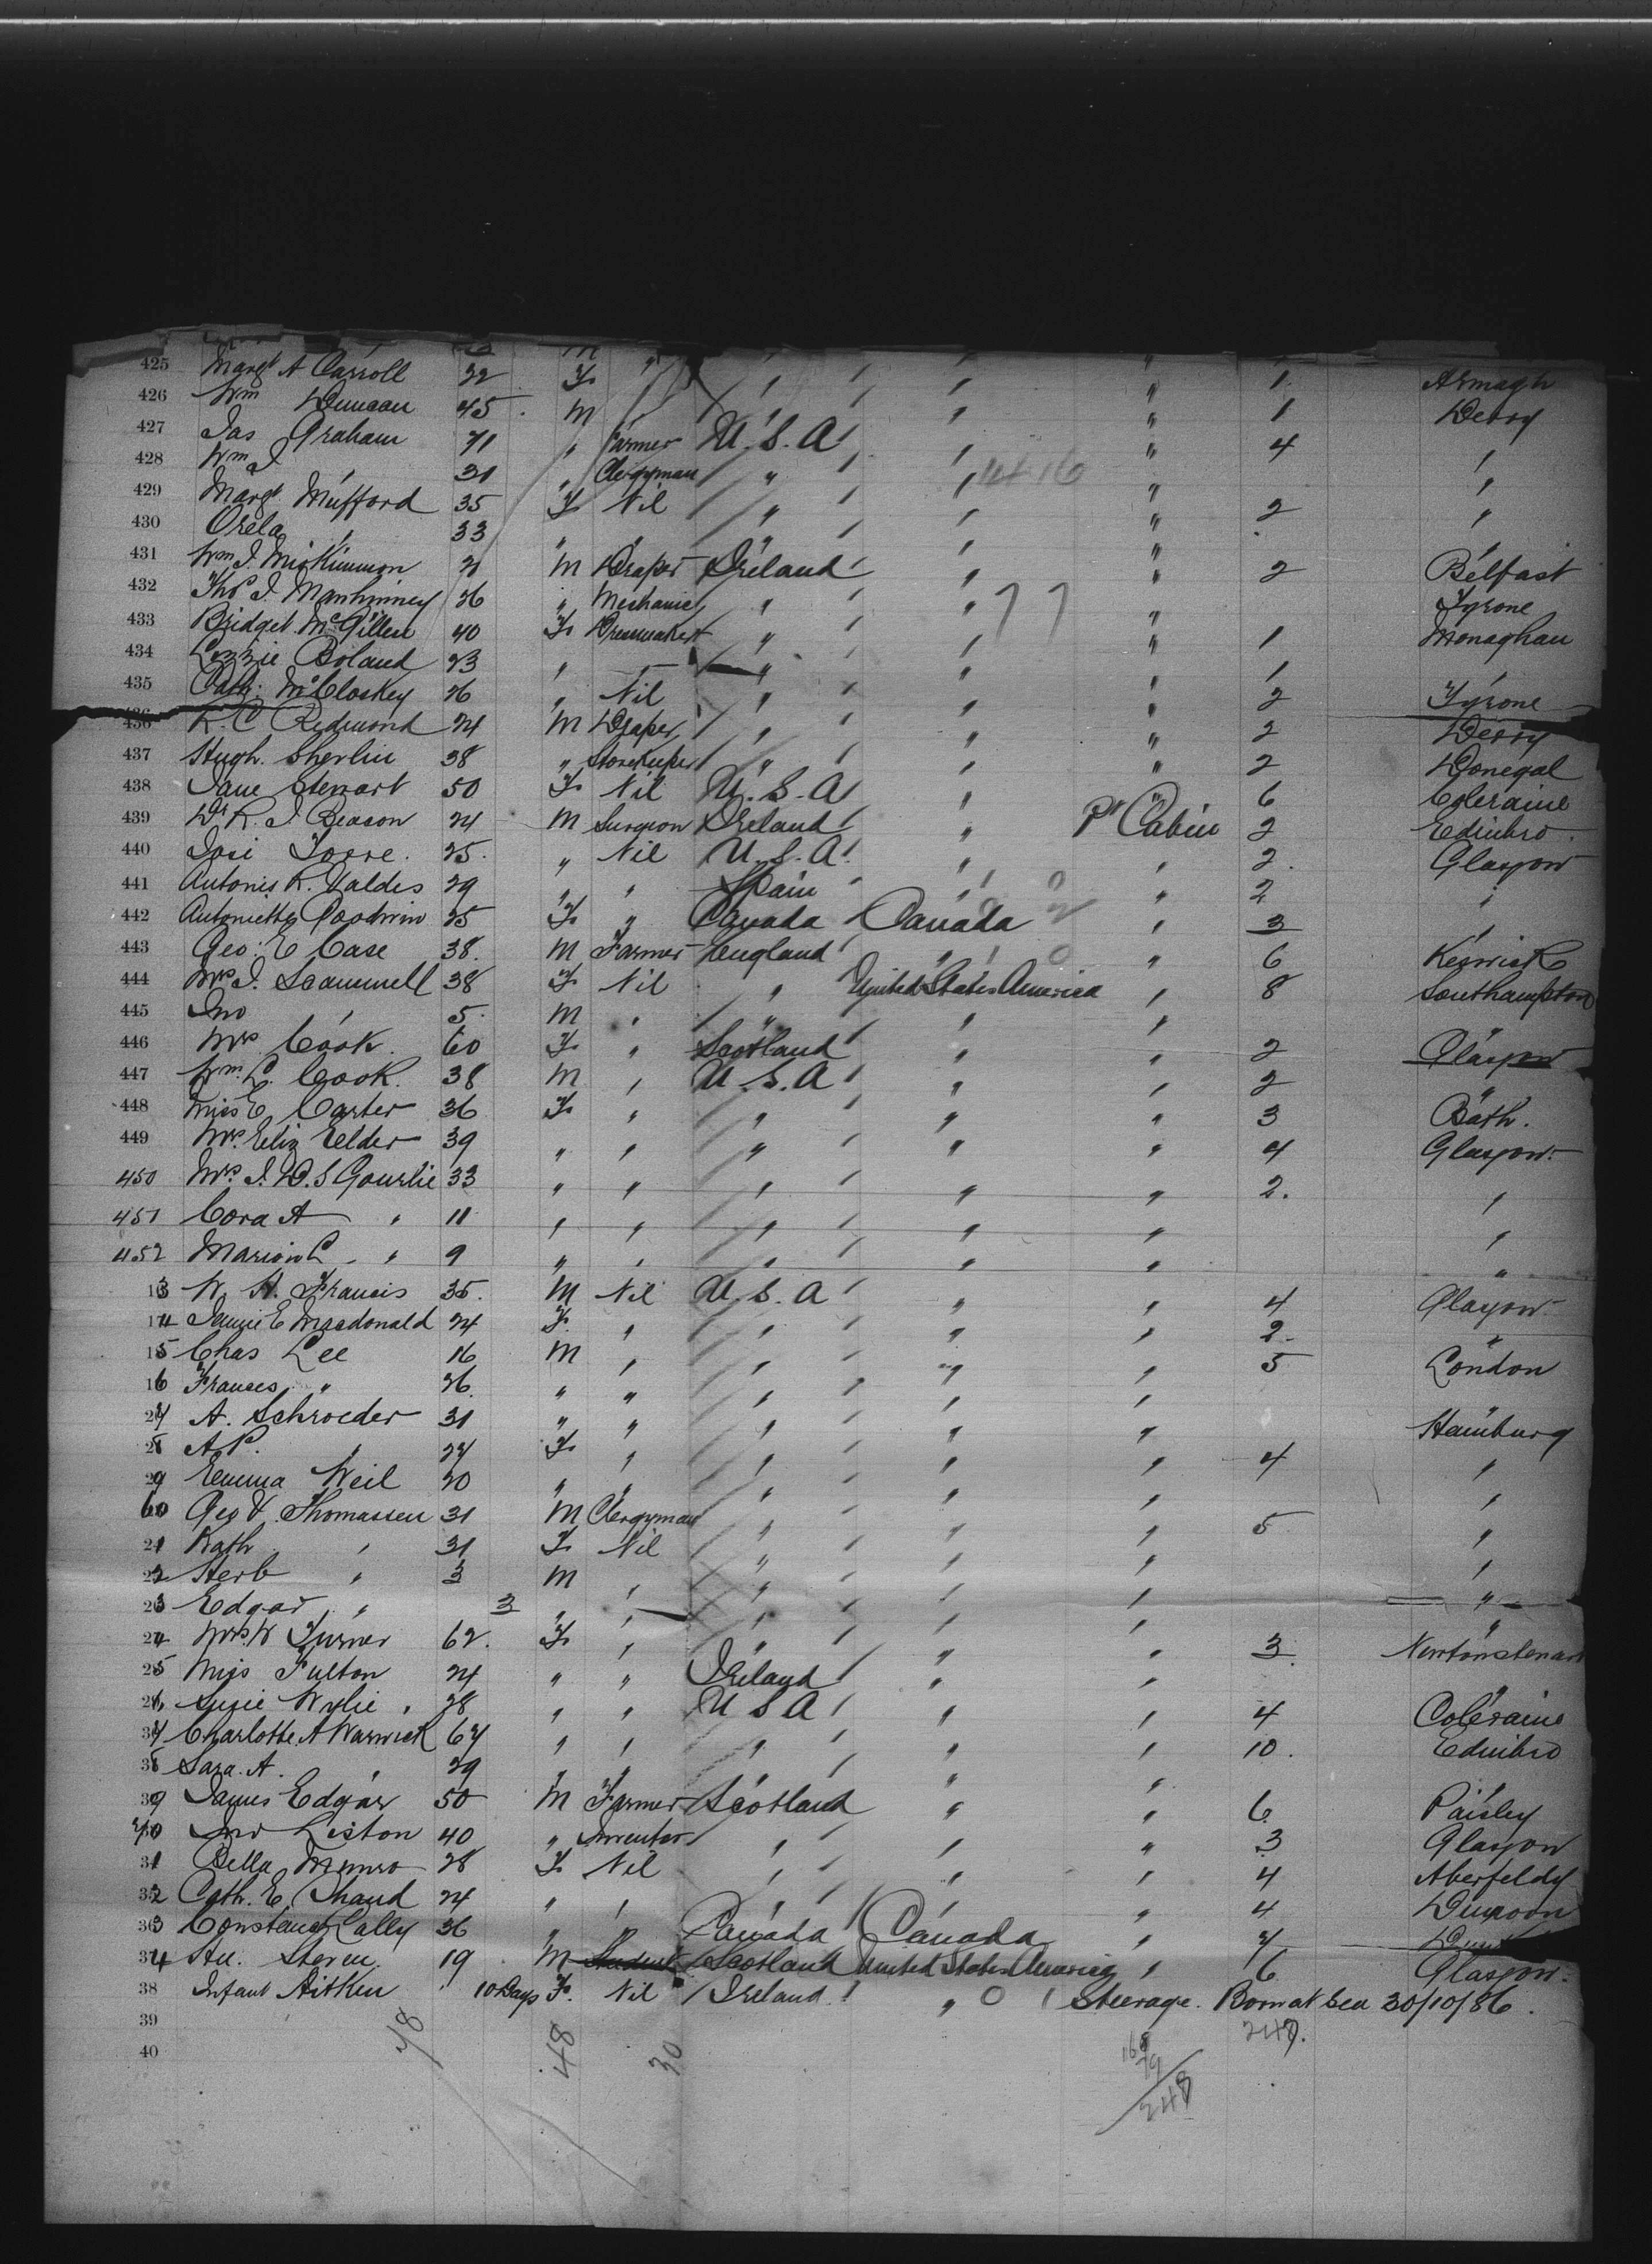 425 Margt A Carroll 32 F " " " " 1 Armagh
426 Wm Duncan 45 M " " " 1 Derry
427 Jas Graham 71 " Farmer U.S.A " " 4 "
428 Wm J " 31 " Clergyman " " " "
429 Margt Mufford 35 F Nil " " " 2 "
430 Orela " 33 " " " " " "
431 Wm J. McKinnon M Draper Ireland " " 2 Belfast
432 Thos J. Manhinney 26 " Mechanic " " " Tyrone
433 Bridget McGillen 40 F Dressmaker " " " 1 Monaghan
434 Lizzie Boland 23 " " " " 1 "
435 Cath: McCloskey 26 " Nil " " " 2 Tyrone
436 R. C Redmond 24 M Draper " " " 2 Derry
437 Hugh. Sherlin 38 " Storekeeper " " " 2 Donegal
438 Jane Stewart 50 F Nil U.S.A " " 6 Coleraine
439 Dr R. J Beacon 24 M Surgeon Ireland " Cabin 2 Edinbro.
440 25 " Nil U.S.A. " " 2. Glasgow
441 Antonis R. Valdes 29 " " Spain " " 2 "
442 Goodwin 25 F " Canada Canada " 3 "
443 Geo: E Case 38. M Farmer England " " 6 Keswick
444 Mrs J. Scammell 38 F Nil " United States America " 8 Southampton
445 Jno " 5. M " " " " "
446 Mrs Cook. 60 F " Scotland " " 2 Glasgow
447 Wm. L. Cook. 38 M " U.S.A " " 2 "
448 Miss E Carter 36 F " " " " 3 Bath.
449 Mrs. Eliz Elder 39 " " " " " 4 Glasgow.
450 Mrs. J. D. S Gourlie 33 " " " " " 2. "
451 Cora A " 11 " " " " " "
452 Marion L " 9 " " " " " "
3 W. H. Francis 35. M Nil U.S.A " " 4 Glasgow.
4 Jennie E Macdonald 24 F. " " " " 2. "
5 Chas Lee 16 M " " " " 5 London
6 Frances " 26. " " " " " "
7 A. Schroeder 31 " " " " " Hamburg
8 A.P. " 24 F " " " " 4 "
9 Emma Weil 20 " " " " " "
60 Geo V. Thomassen 31 M Clergyman " " " 5 "
1 Kath " 31 F Nil " " " "
2 Herb " 3 M " " " " "
3 Edgar " 3 " " " " " "
4 Mrs. W Turner 62. F " " " " 3. Newtonstewart
5 Miss Fulton 24 " " Ireland " " "
6 Susie Wylie. 28 " " U S A " " 4 Coleraine
7 Charlotte. A Warwick 67 " " " " " 10. Edinbro
8 Sara. A. " 29 " " " " " "
9 James Edgar 50 M Farmer Scotland " " 6. Paisley
70 Jno Liston 40 " Inventor " " " 3 Glasgow
1 Bella Munro 28 F Nil " " " 4 Aberfeldy
2 Cath. E. Shand 24 " " " " " 4 Dunoon
3 Constance Cally 36 " " Canada Canada " 7
4 Steven. 19 M Student Scotland United States America " 6 Glasgow.
38 Infant Aitken 10 Days F. Nil Ireland. " 0 Steerage. Born at Sea 30/10/86.
39 248.
40 78 48 30 248